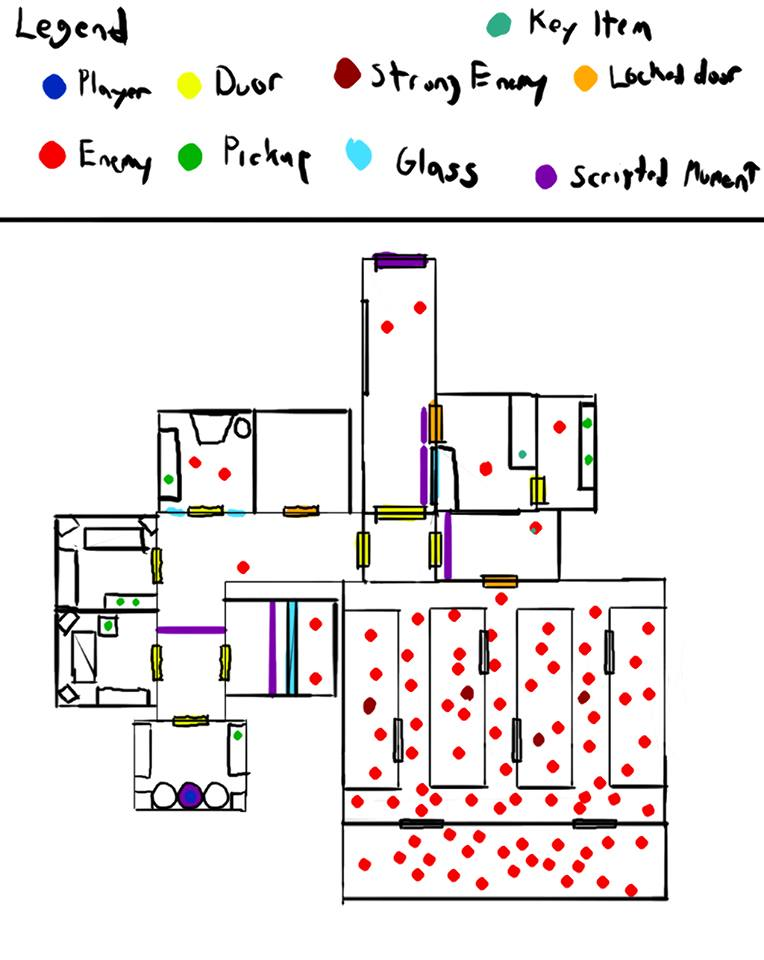 Legend
Key Item
Player
Door
Strong Enemy
Locked door
Enemy
Pickup
Glass
Scripted Moment